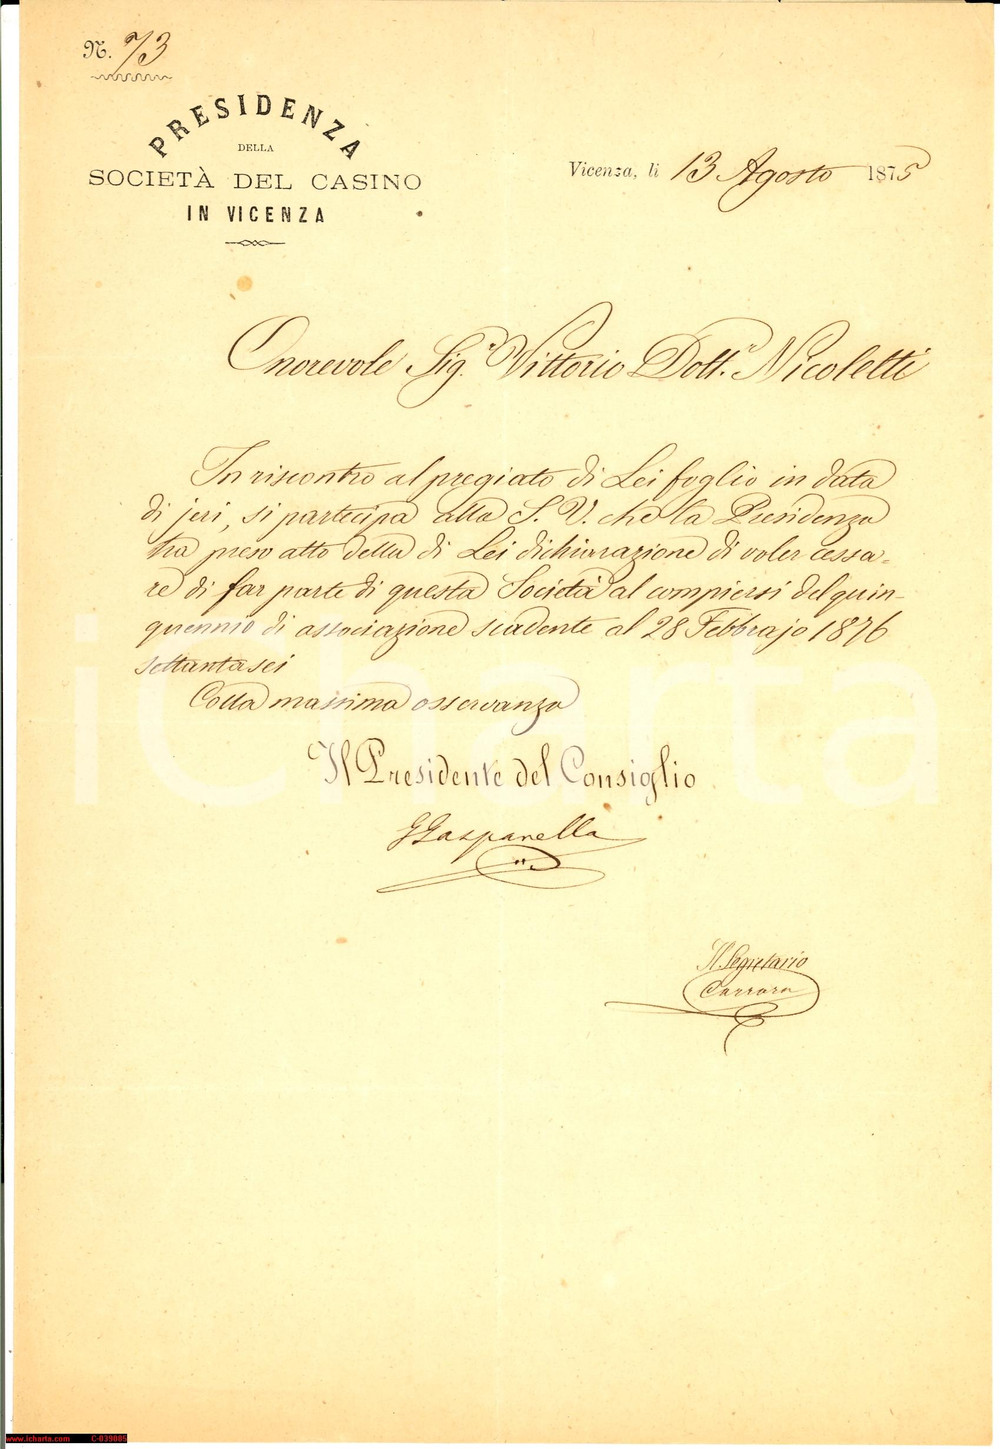 N. 73
PRESIDENZA
DELLA
SOCIETÀ DEL CASINO
IN VICENZA
Vicenza, li 13 Agosto 1875
Onorevole Sig.r Vittorio Dott.r Nicoletti
In riscontro al pregiato di Lei foglio in data
di jeri, si partecipa alla S. V. che la Presidenza
ha preso atto della di Lei dichiarazione di voler cessa-
re di far parte di questa Società al compiersi del quin-
quennio di associazione scadente al 28 Febbrajo 1876
settantasei
Colla massima osservanza
Il Presidente del Consiglio
G Gasparella
Il Segretario
Carrara
iCharta
www.icharta.com C-039005